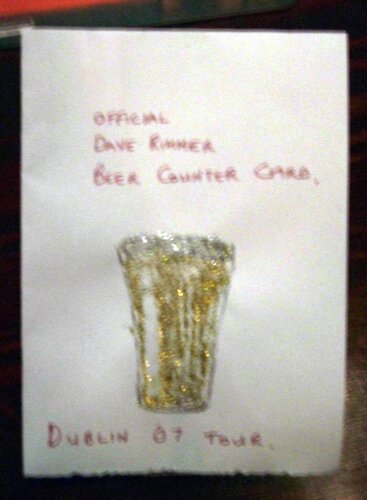 OFFICIAL
DAVE RIMMER
BEER COUNTER CARD.
DUBLIN 07 TOUR.